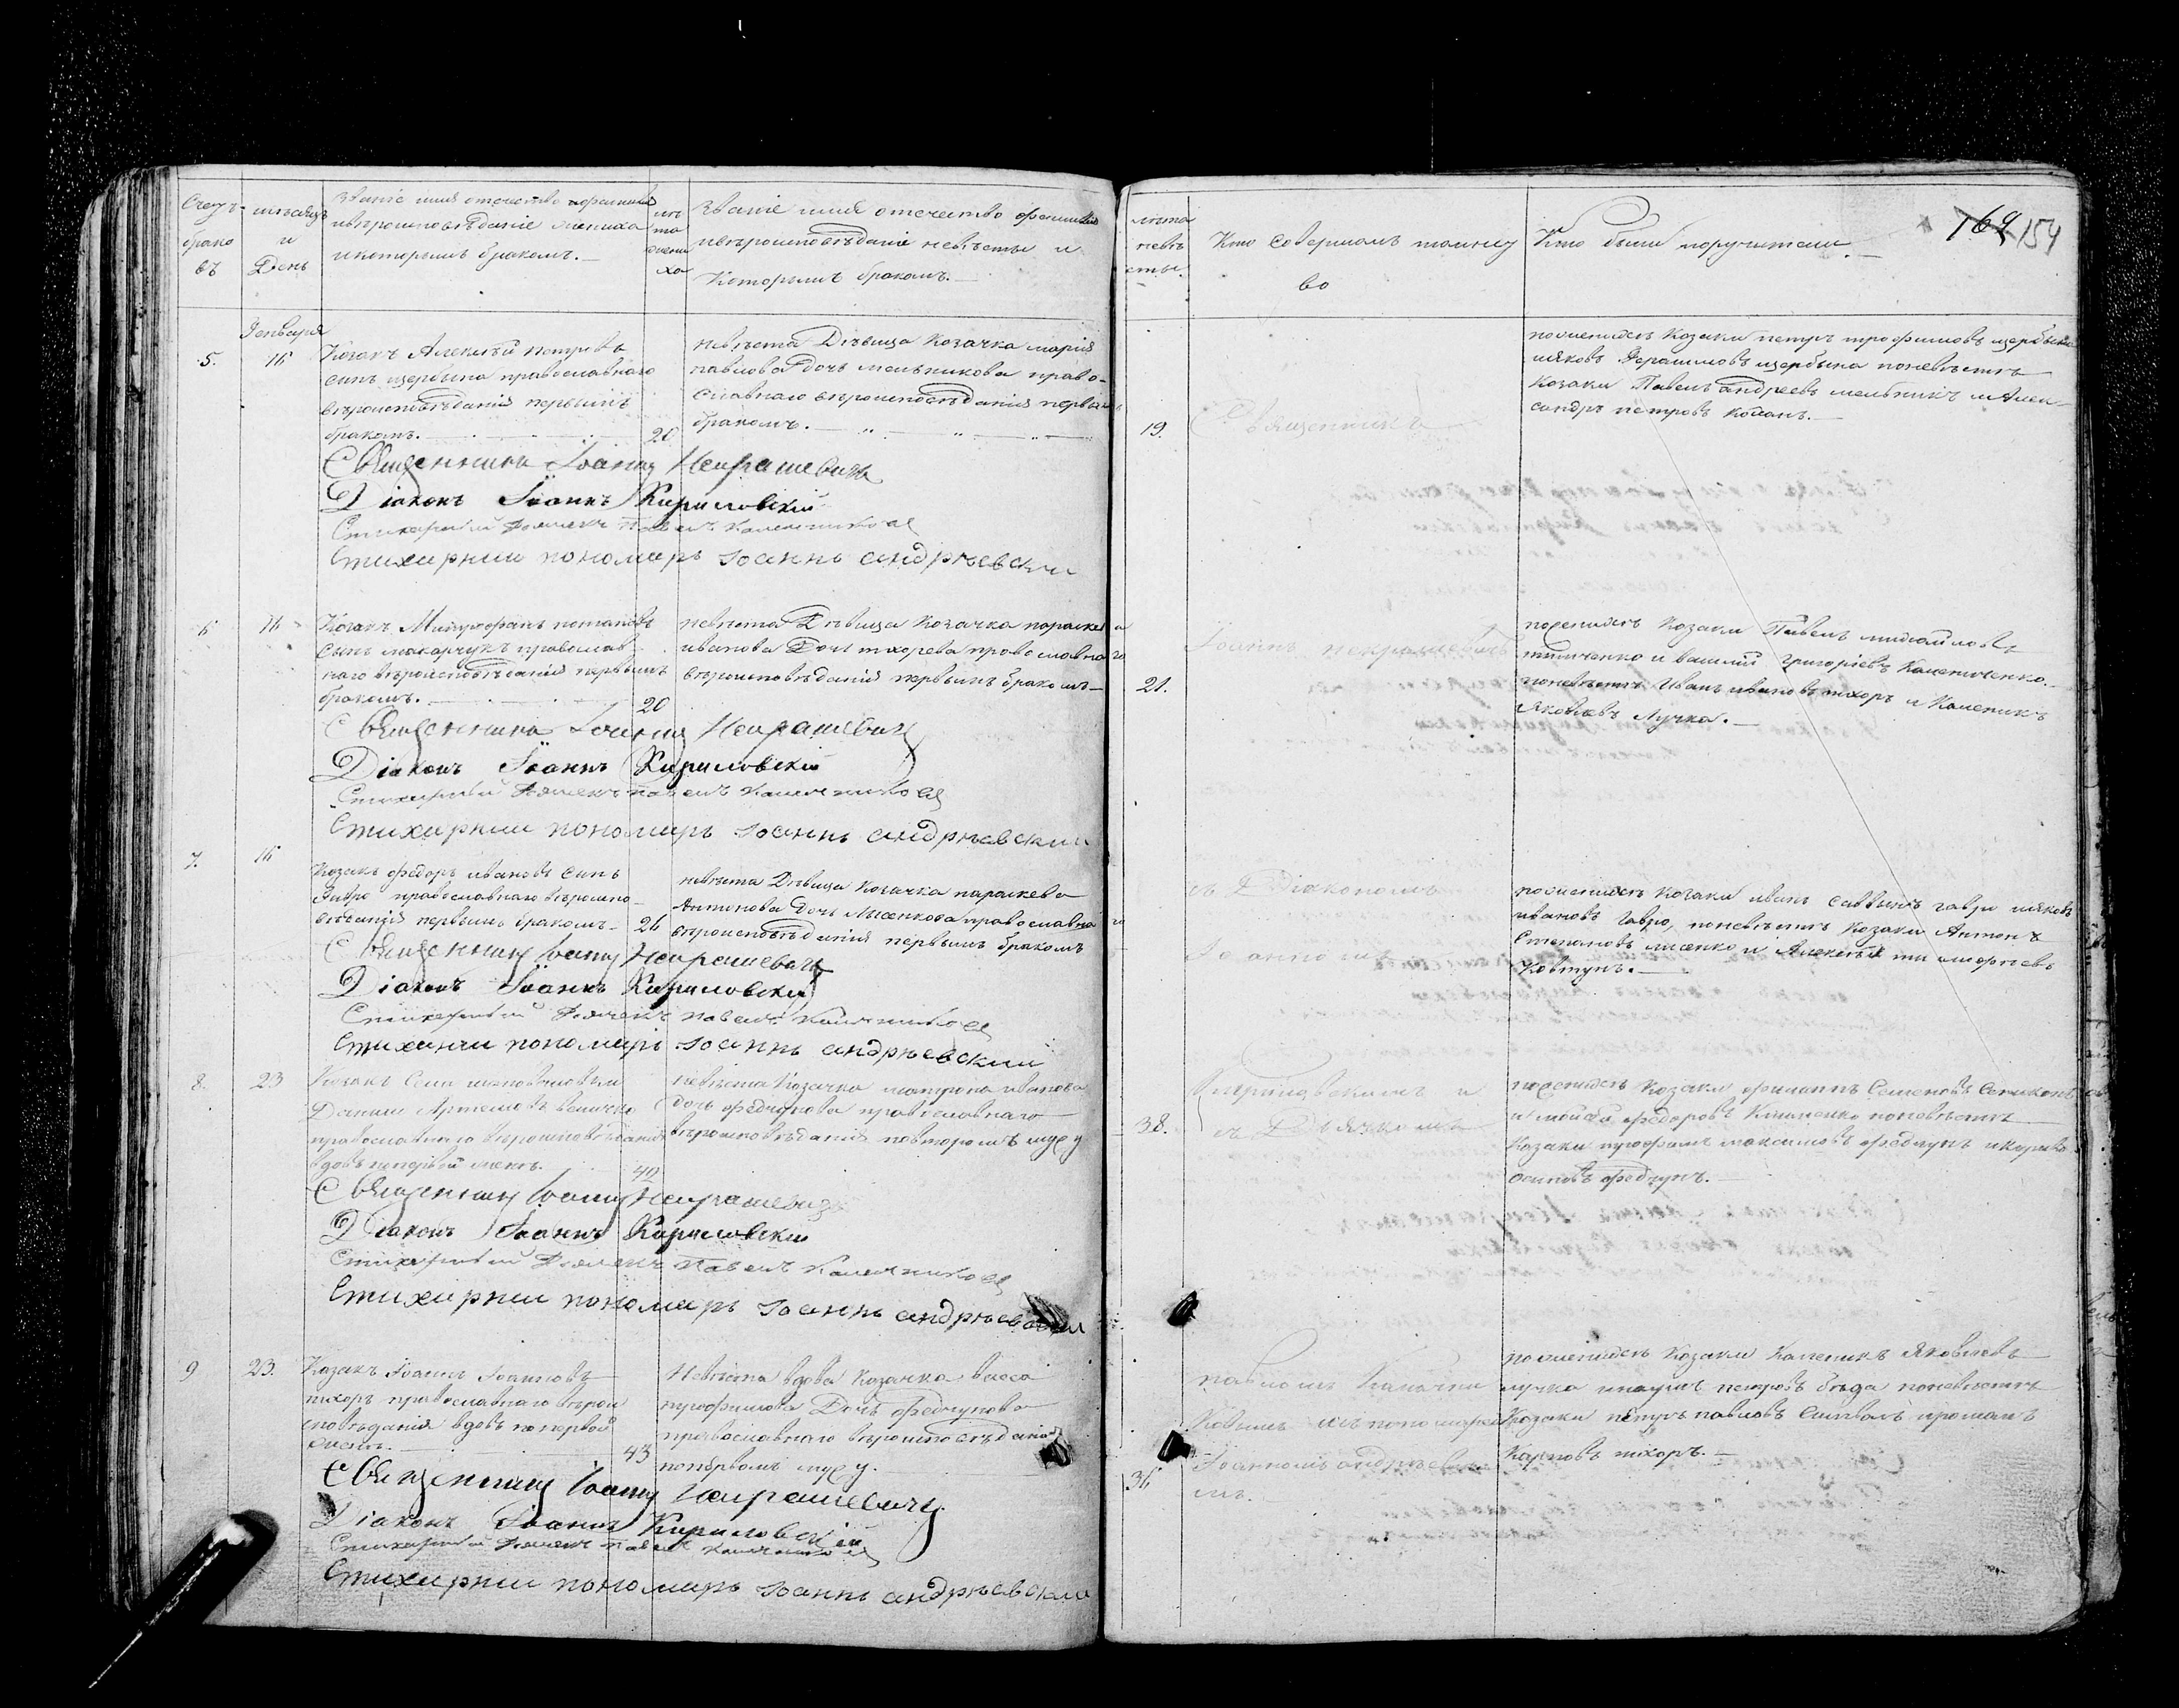 Счетъ брако въ
мѣсяцъ и День
Званіе имя отечество
ивѣроисповѣданіе жениха
икоторымъ бракомъ.
лѣ та жени ха
Званіе имя отечество фамилія
ивѣроисповѣданіе невѣсты и
Которымъ бракомъ.
лѣта невѣ сты.
Кто Совершалъ таинст во
Кто были поручители
169 154
Генваря
5. 16
Козакъ Алексѣй петровъ
синъ щербина православнаго
вѣроисповѣданія первымъ
бракомъ.
20
невѣста Дѣвица Козачка марія
павлова Дочь мельникова право-
славнаго вѣроисповѣданія первымъ
бракомъ.
19.
Священникъ
поженихѣ Козаки петръ трофимовъ щербина
ияковъ Герасимовъ щербина поневѣстѣ
Козаки Павелъ андреевъ мельникъ иАлек
сандръ петровъ
Священникъ Іоаннъ Некрашевичъ
Діаконъ Іоаннъ Кириловскій
Стихарный Дьячекъ Павелъ
Стихирнии пономарь Іоаннъ андрѣевскии
6 16
Козакъ Митрофанъ потаповъ
Сынъ макарчукъ православ
наго вѣроисповѣданія первымъ
бракомъ.
20
невѣста Дѣвица Козачка параскева
иванова Дочь тхорева православнаго
вѣроисповѣданія первымъ бракомъ
21.
Іоаннъ некрашевичъ
поженихѣ Козаки Павелъ михайловъ
и василій григоріевъ Калениченко
поневѣстѣ Иванъ ивановъ тхоръ и Каленикъ
Яковлевъ Лучка.
Священникъ Іоаннъ Некрашевичъ
Діаконъ Іоаннъ Кириловскій
Стихарный Дьячекъ павелъ
Стихирнии пономирь Іоаннъ андрѣевскии
7. 16
Козакъ федоръ ивановъ Синъ
Гавро православнаго вѣроиспо-
вѣданія первымъ бракомъ
26
невѣста Дѣвица Козачка параскева
Антонова Дочь Лысенкова православнаго
вѣроисповѣданія первымъ бракомъ
съ Діакономъ
Іоанномъ
поженихѣ Козаки иванъ Саввинъ гавро ияковъ
ивановъ Гавро, поневѣстѣ Козаки Антонъ
Степановъ лисенко и Алексѣй
Ковтунъ.
Священникъ Іоаннъ Некрашевичъ
Діаконъ Іоаннъ Кириловскій
Стихарный Дьячекъ павелъ
Стихирнии пономарь Іоаннъ андрѣевский
8. 23
Козакъ
Артемовъ величко
православнаго вѣроисповѣданія
вдовъ попервой женѣ.
42
невѣста Козачка матрона иванова
дочь федчунова православнаго
вѣроисповѣданія повторомъ мужу
38.
Кириловскимъ и
съ Дьячкомъ
поженихѣ Козаки филиппъ Семеновъ
и моисей федоровъ Клименко поневѣстѣ
Козаки трофимъ максимовъ федчунъ
осиповъ федчунъ.
Священникъ Іоаннъ Некрашевичъ
Діаконъ Іоаннъ Кириловскій
Стихарный Дьячекъ Павелъ
Стихирнии пономарь Іоаннъ андрѣевскии
9 23.
Козакъ Іоаннъ Іоанновъ
тхоръ православнаго вѣрои
сповѣданія вдовъ попервой
женѣ.
43
Невѣста вдова Козачка
трофимова Дочь федчунова
православнаго вѣроисповѣданія
попервомъ мужу.
36
павломъ
пономаремъ
Іоанномъ андрѣевски
мъ.
поженихѣ Козаки Каленикъ Яковлевъ
лучка инаумъ петровъ бѣда поневѣстѣ
Козаки петръ павловъ
Карповъ тхоръ.
Священникъ Іоаннъ Некрашевичъ
Діаконъ Іоаннъ Кириловскій
Стихарный Дьячекъ павелъ
Стихирнии пономарь Іоаннъ андрѣевскии